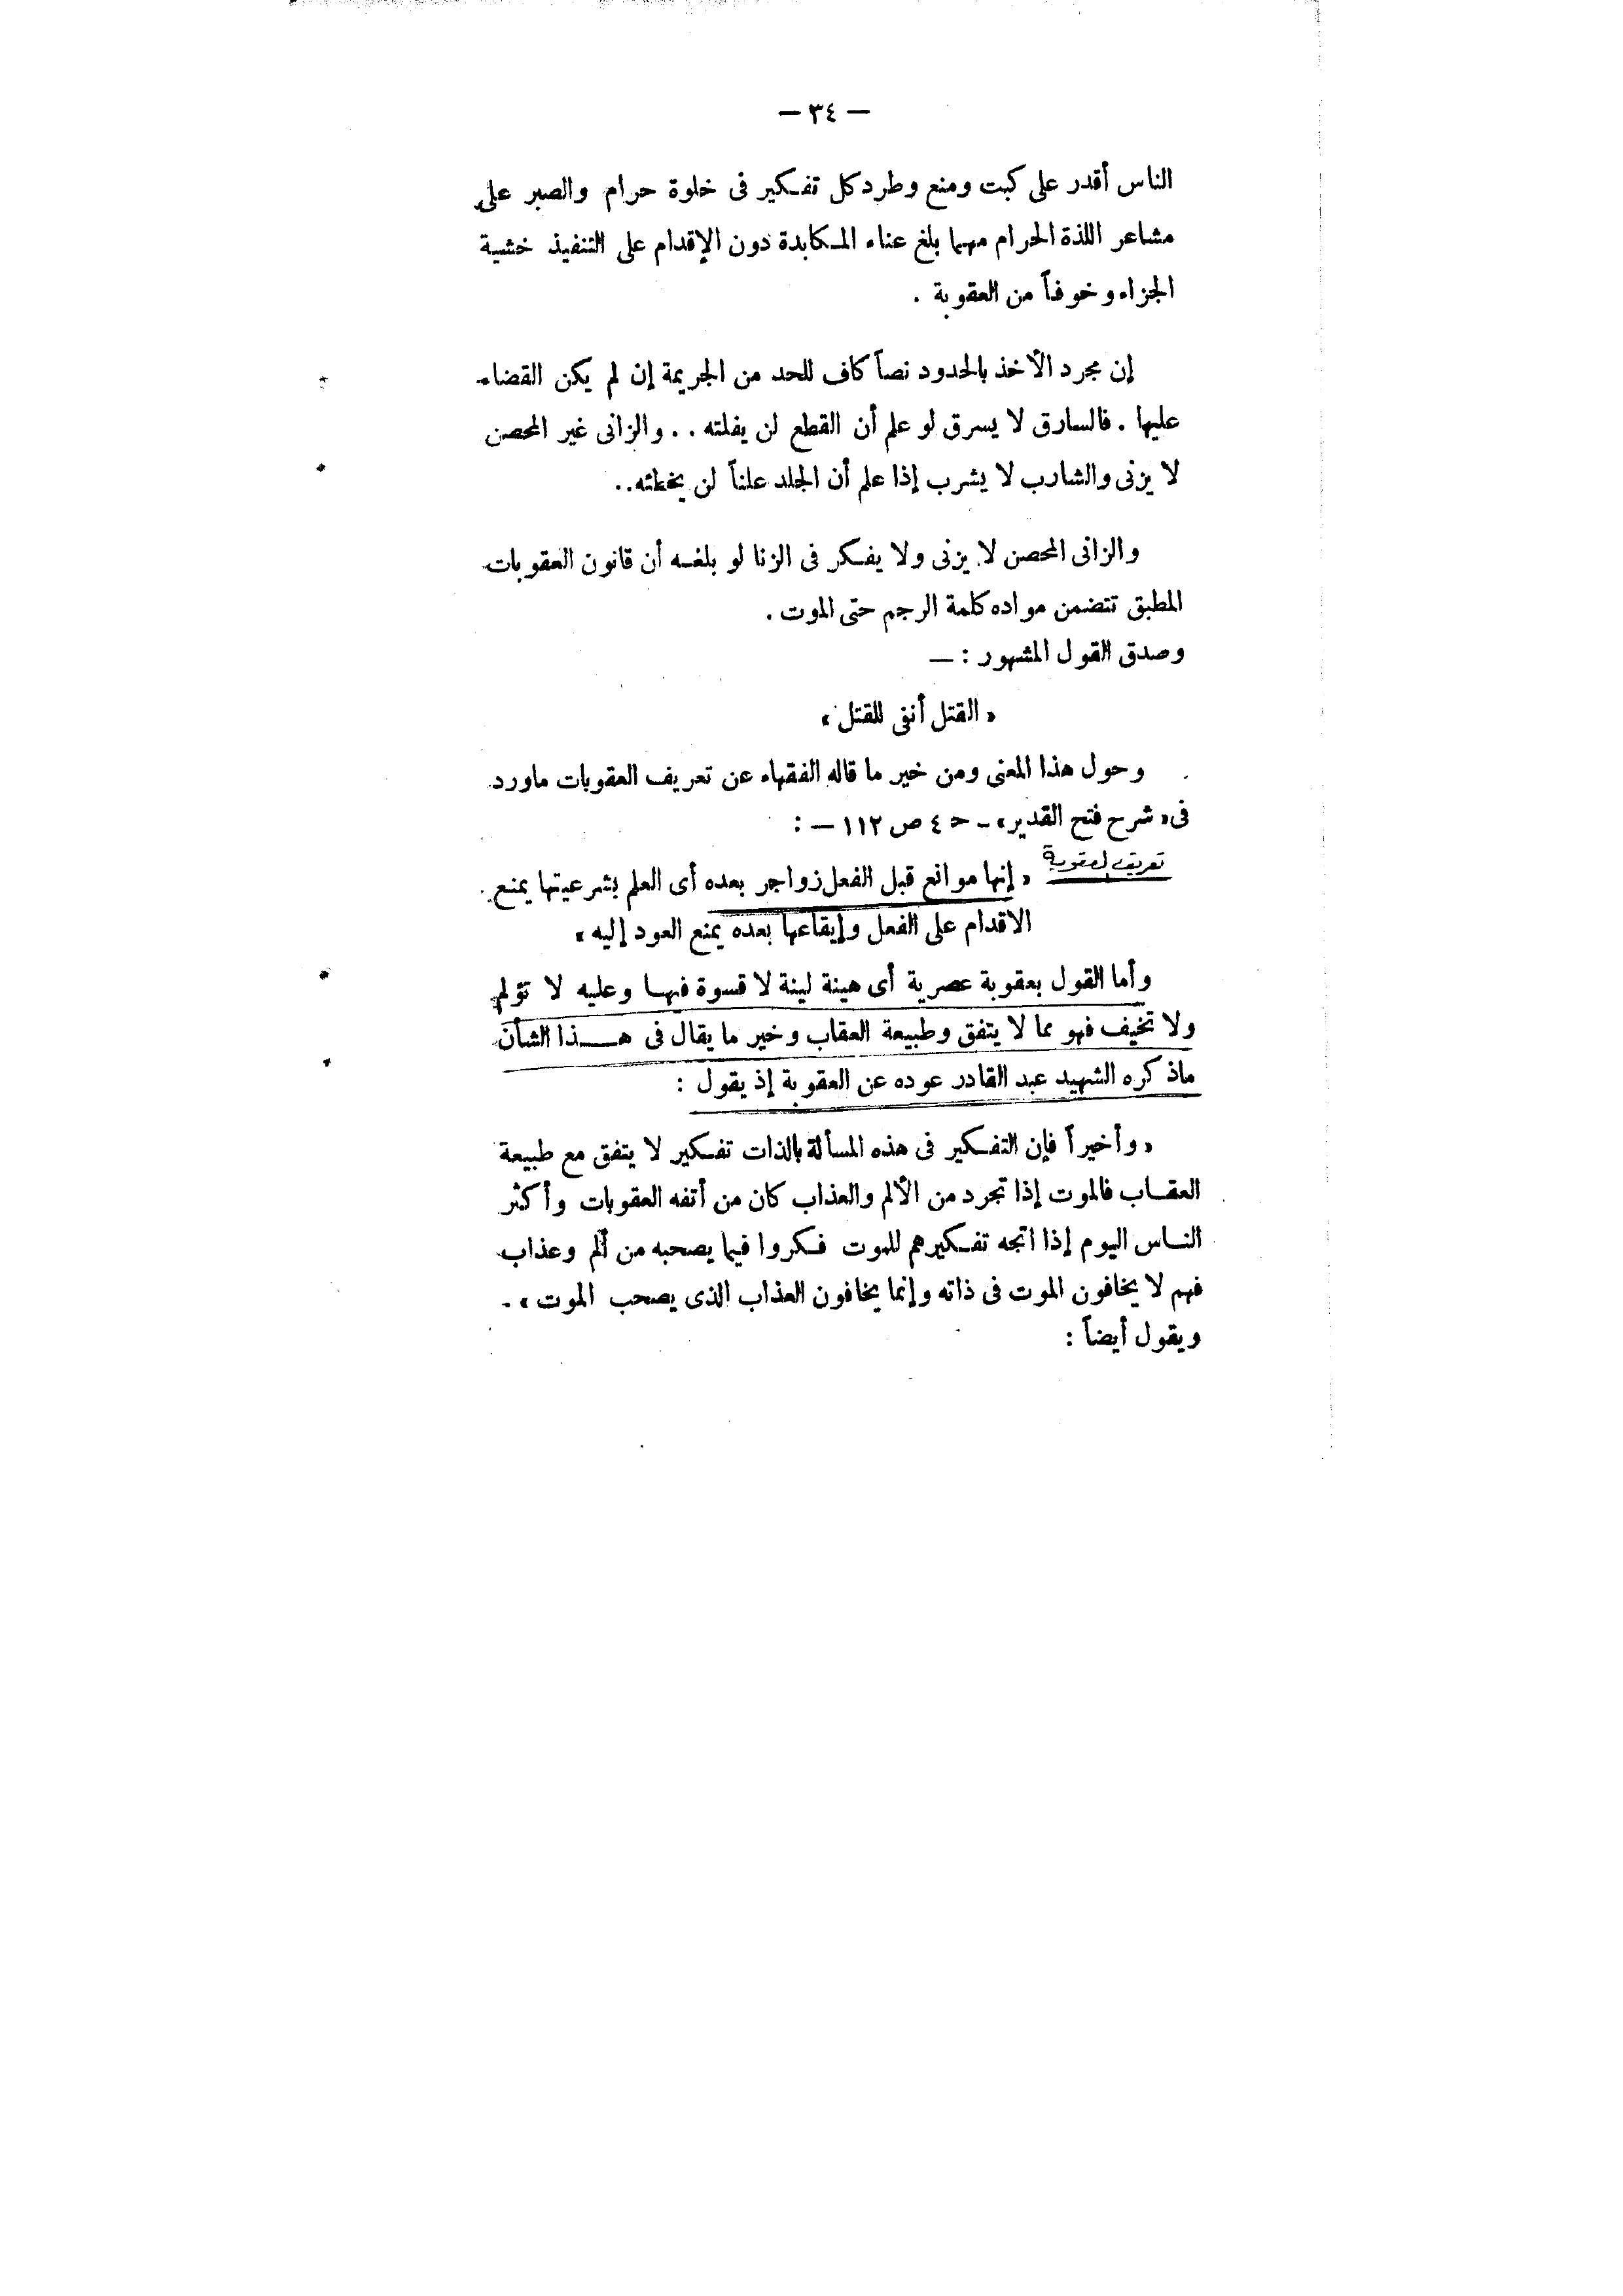 — ٣٤ —
الناس أقدر على كبت ومنع وطرد كل تفكير فى خلوة حرام والصبر على
مشاعر اللذة الحرام مهما بلغ عناء المكابدة دون الإقدام على التنفيذ خشية
الجزاء وخوفاً من العقوبة .
إن مجرد الأخذ بالحدود نصاً كاف للحد من الجريمة إن لم يكن القضاء
عليها . فالسارق لا يسرق لو علم أن القطع لن يفلته . . والزانى غير المحصن
لا يزنى والشارب لا يشرب إذا علم أن الجلد علناً لن يخطئه . .
والزانى المحصن لا يزنى ولا يفكر فى الزنا لو بلغه أن قانون العقوبات
المطبق تتضمن مواده كلمة الرجم حتى الموت .
وصدق القول المشهور : —
« القتل أنفى للقتل »
وحول هذا المعنى ومن خير ما قاله الفقهاء عن تعريف العقوبات ماورد
فى « شرح فتح القدير » - ح ٤ ص ١١٢ — :
تعريف العقوبة
« إنها موانع قبل الفعل زواجر بعده أى العلم بشرعيتها يمنع
الاقدام على الفعل وإيقاعها بعده يمنع العود إليه »
وأما القول بعقوبة عصرية أى هينة لينة لا قسوة فيها وعليه لا تؤلم
ولا تخيف فهو مما لا يتفق وطبيعة العقاب وخير ما يقال فى هذا الشأن
ماذكره الشهيد عبد القادر عوده عن العقوبة إذ يقول :
« وأخيراً فإن التفكير فى هذه المسألة بالذات تفكير لا يتفق مع طبيعة
العقاب فالموت إذا تجرد من الألم والعذاب كان من أتفه العقوبات وأكثر
الناس اليوم إذا اتجه تفكيرهم للموت فكروا فيما يصحبه من ألم وعذاب
فهم لا يخافون الموت فى ذاته وإنما يخافون العذاب الذى يصحب الموت » .
ويقول أيضاً :